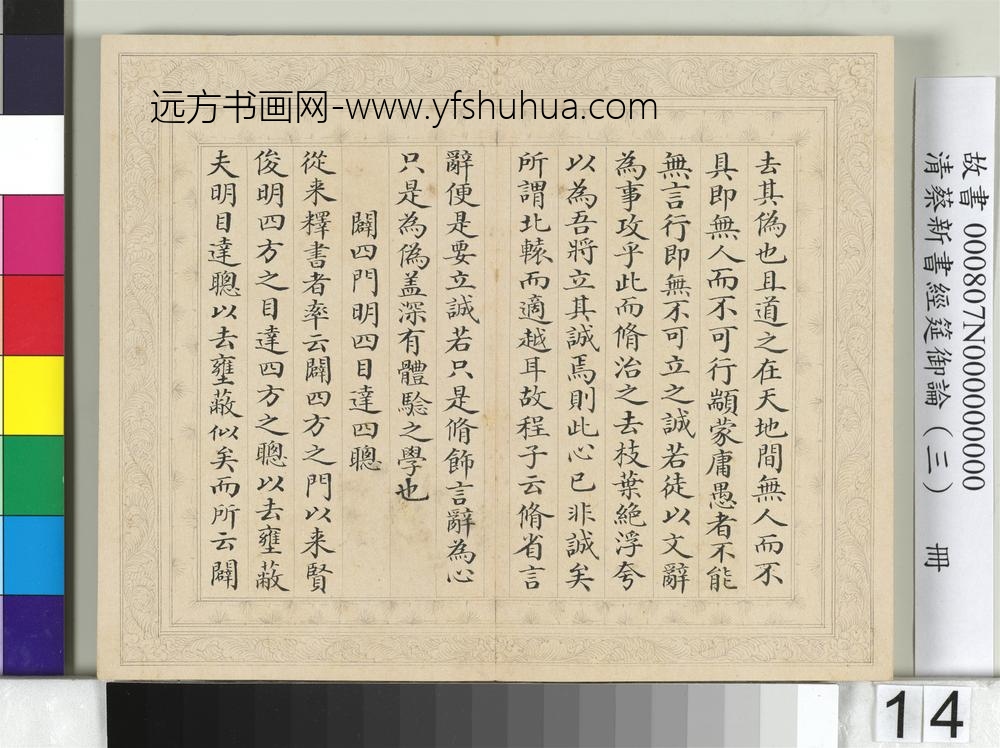 远方书画网-www.yfshuhua.com
去其偽也且道之在天地間無人而不
具即無人而不可行顓蒙庸愚者不能
無言行即無不可立之誠若徒以文辭
為事攻乎此而脩治之去枝葉絕浮夸
以為吾將立其誠焉則此心已非誠矣
所謂北轅而適越耳故程子云脩省言
辭便是要立誠若只是脩飾言辭為心
只是為偽盖深有體驗之學也
闢四門明四目達四聰
從来釋書者率云闢四方之門以来賢
俊明四方之目達四方之聰以去壅蔽
夫明目達聰以去壅蔽似矣而所云闢
故書 000807N000000000
清蔡新書經筵御論（三） 冊
14